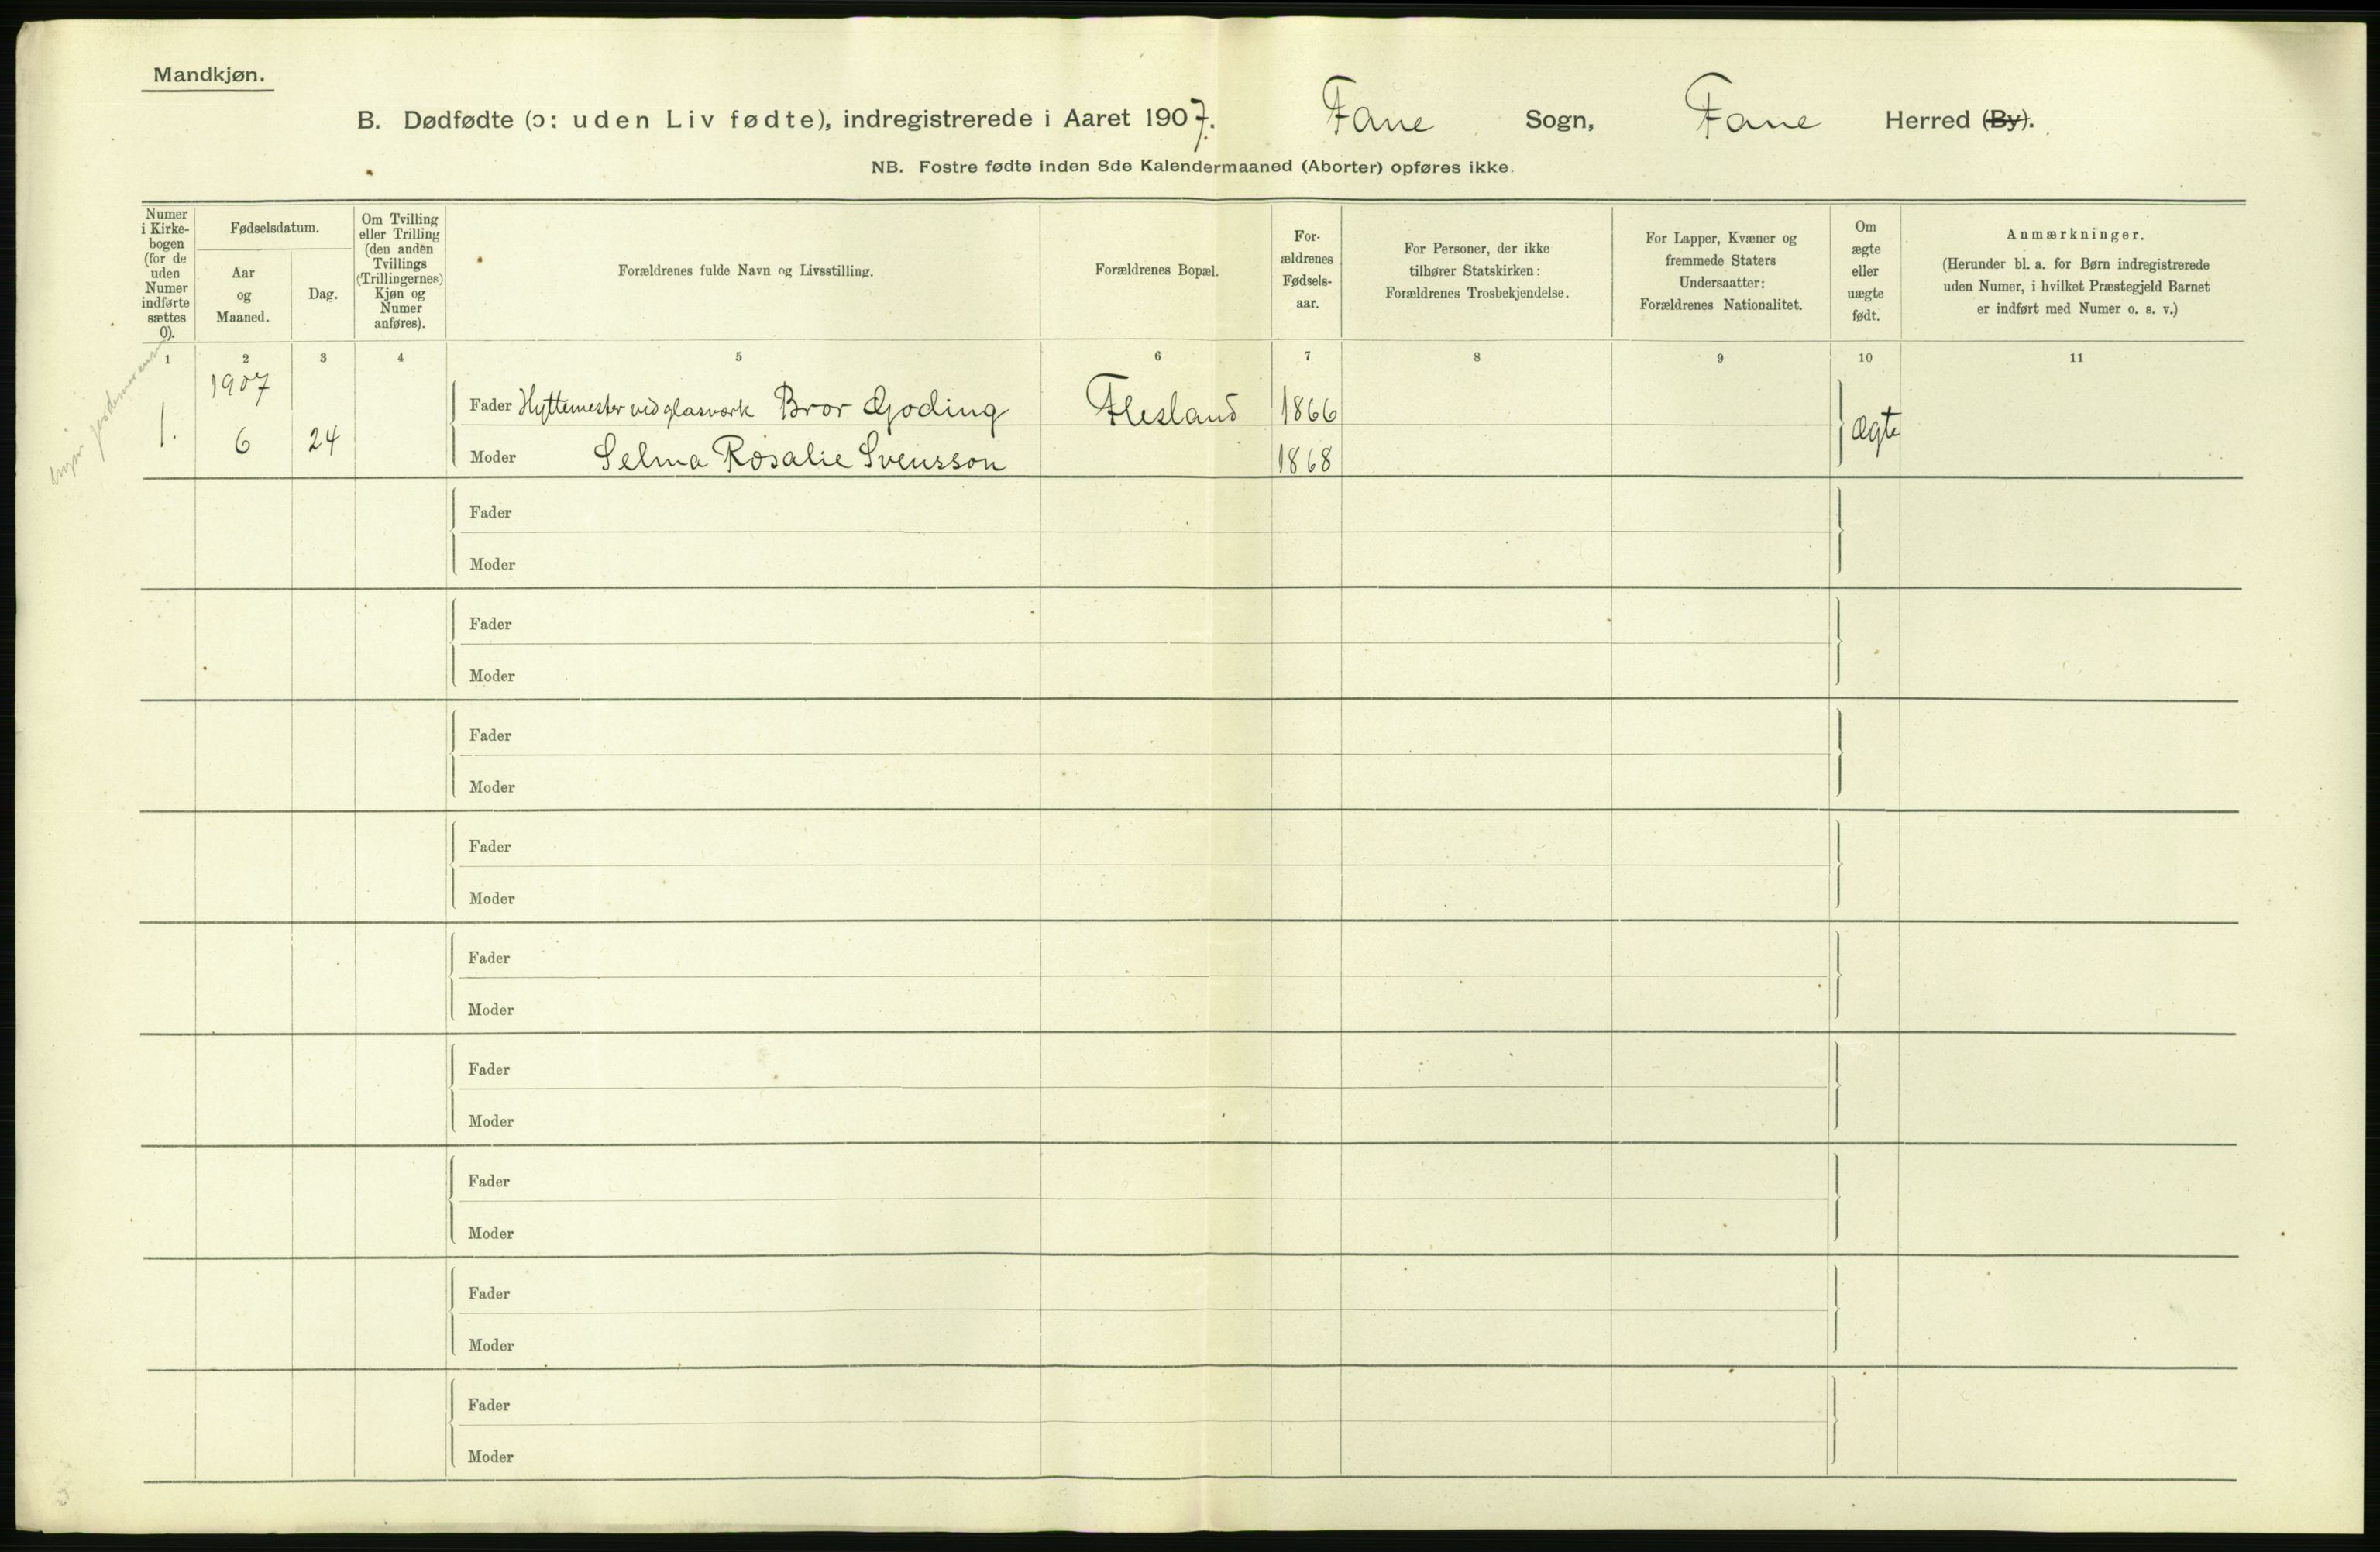 Mandkjøn.
B. Dødfødte (ɔ: uden Liv fødte), indregistrerede i Aaret 1907. Fane Sogn, Fane Herred (By).
NB. Fostre fødte inden 8de Kalendermaaned (Aborter) opføres ikke.
Numer
i Kirke-
bogen
(for de
uden
Numer
indførte
sættes
0).
Fødselsdatum.
Aar
og
Maaned.
Dag.
Om Tvilling
eller Trilling
(den anden
Tvillings
(Trillingernes)
Kjøn og
Numer
anføres).
Forældrenes fulde Navn og Livsstilling.
Forældrenes Bopæl.
For-
ældrenes
Fødsels-
aar.
For Personer, der ikke
tilhører Statskirken:
Forældrenes Trosbekjendelse.
For Lapper, Kvæner og
fremmede Staters
Undersaatter:
Forældrenes Nationalitet.
Om
ægte
eller
uægte
født.
Anmærkninger.
(Herunder bl. a. for Børn indregistrerede
uden Numer, i hvilket Præstegjeld Barnet
er indført med Numer o. s. v.)
1 2 3 4 5 6 7 8 9 10 11
1907
Fader Hyttemester ved glasværk Bror Goding Flesland 1866
1. 6 24 Ægte
Moder Selma Rosalie Svensson 1868
Fader
Moder
Fader
Moder
Fader
Moder
Fader
Moder
Fader
Moder
Fader
Moder
Fader
Moder
Fader
Moder
Fader
Moder